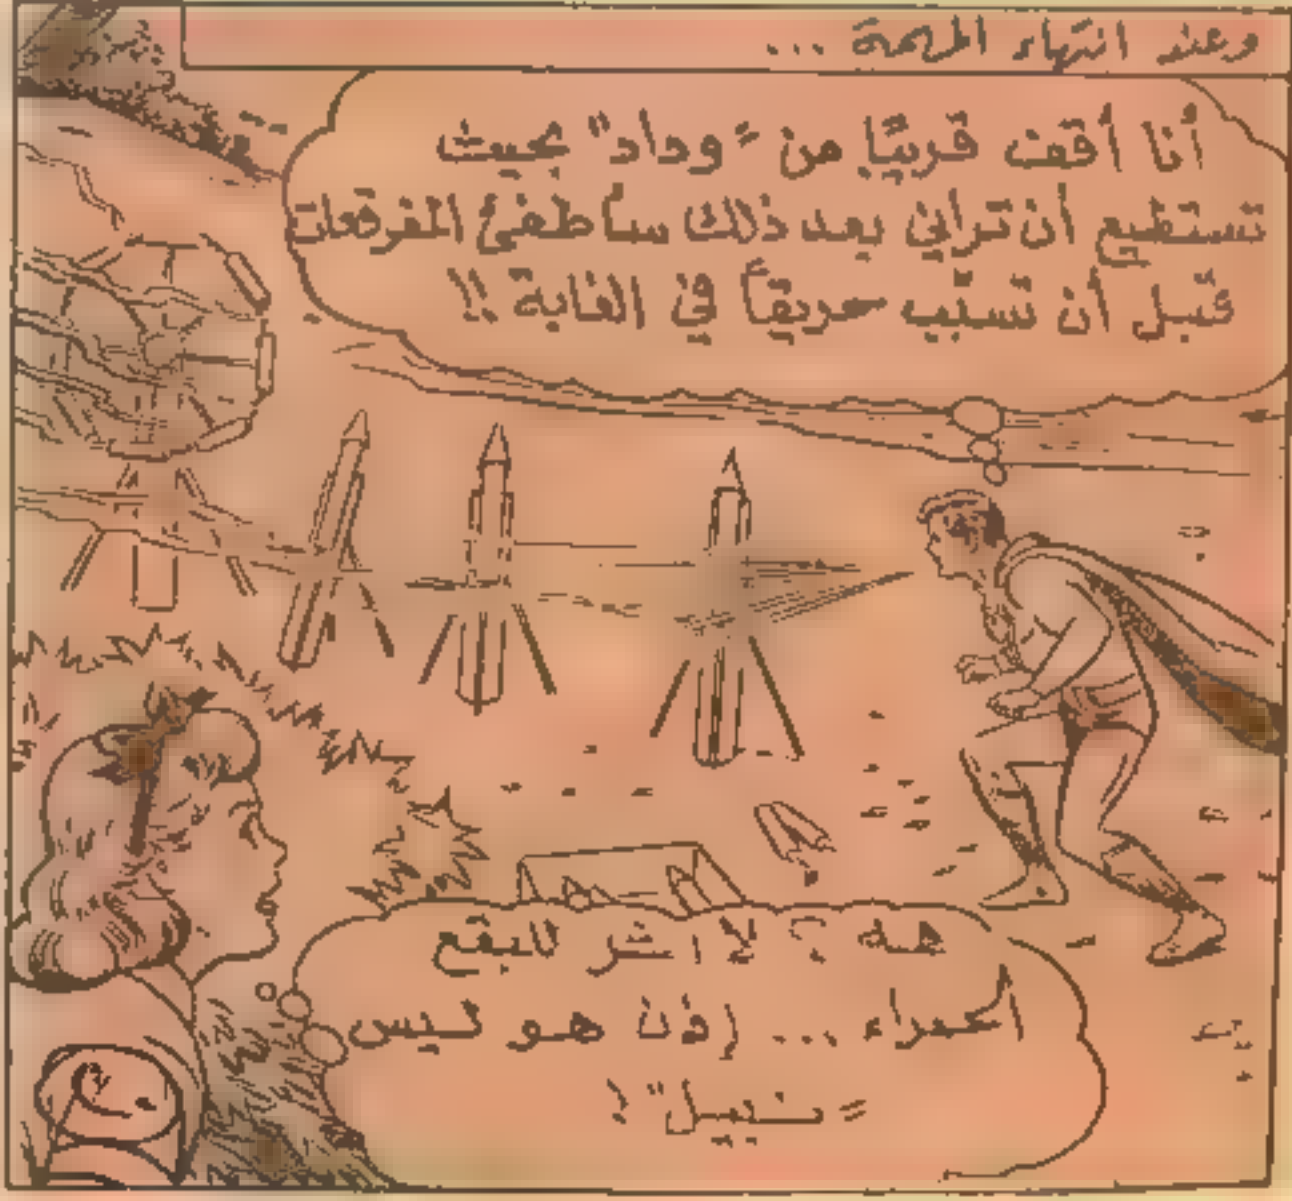 وعند انتهاء المهمة ...
أنا أقف قريبًا من "وداد" بحيث
تستطيع أن تراني بعد ذلك سأطفئ المفرقعات
قبل أن تسبّب حريقاً في الغابة !!
هه ؟ لا اثر للبقع
الحمراء ... إذن هو ليس
"نبيل" !